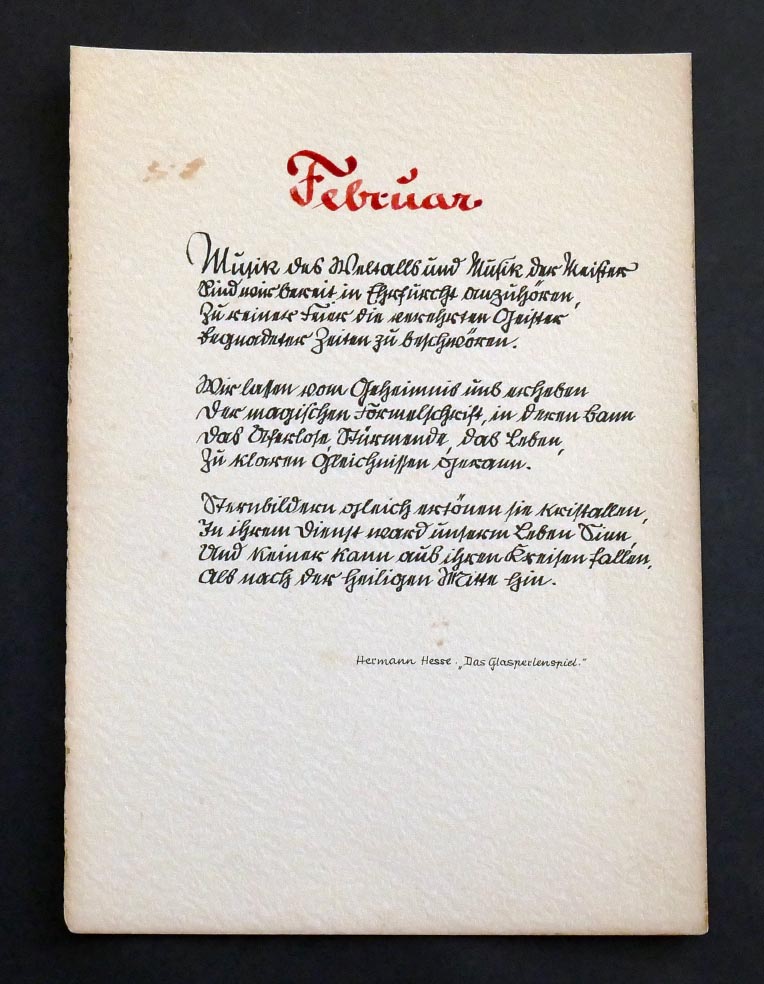 Februar
Musik des Weltalls und Musik der Meister
Sind wir bereit in Ehrfurcht anzuhören,
Zu reiner Feier die verehrten Geister
begnadeter Zeiten zu beschwören.
Wir lassen vom Geheimnis uns erheben
Der magischen Formelschrift, in deren Bann
Das Uferlose, Stürmende, das Leben,
Zu klaren Gleichnissen gerann.
Sternbildern gleich ertönen sie kristallen,
In ihrem Dienst ward unserm Leben Sinn,
Und keiner kann aus ihren Kreisen fallen,
Als nach der heiligen Mitte hin.
Hermann Hesse. „Das Glasperlenspiel."